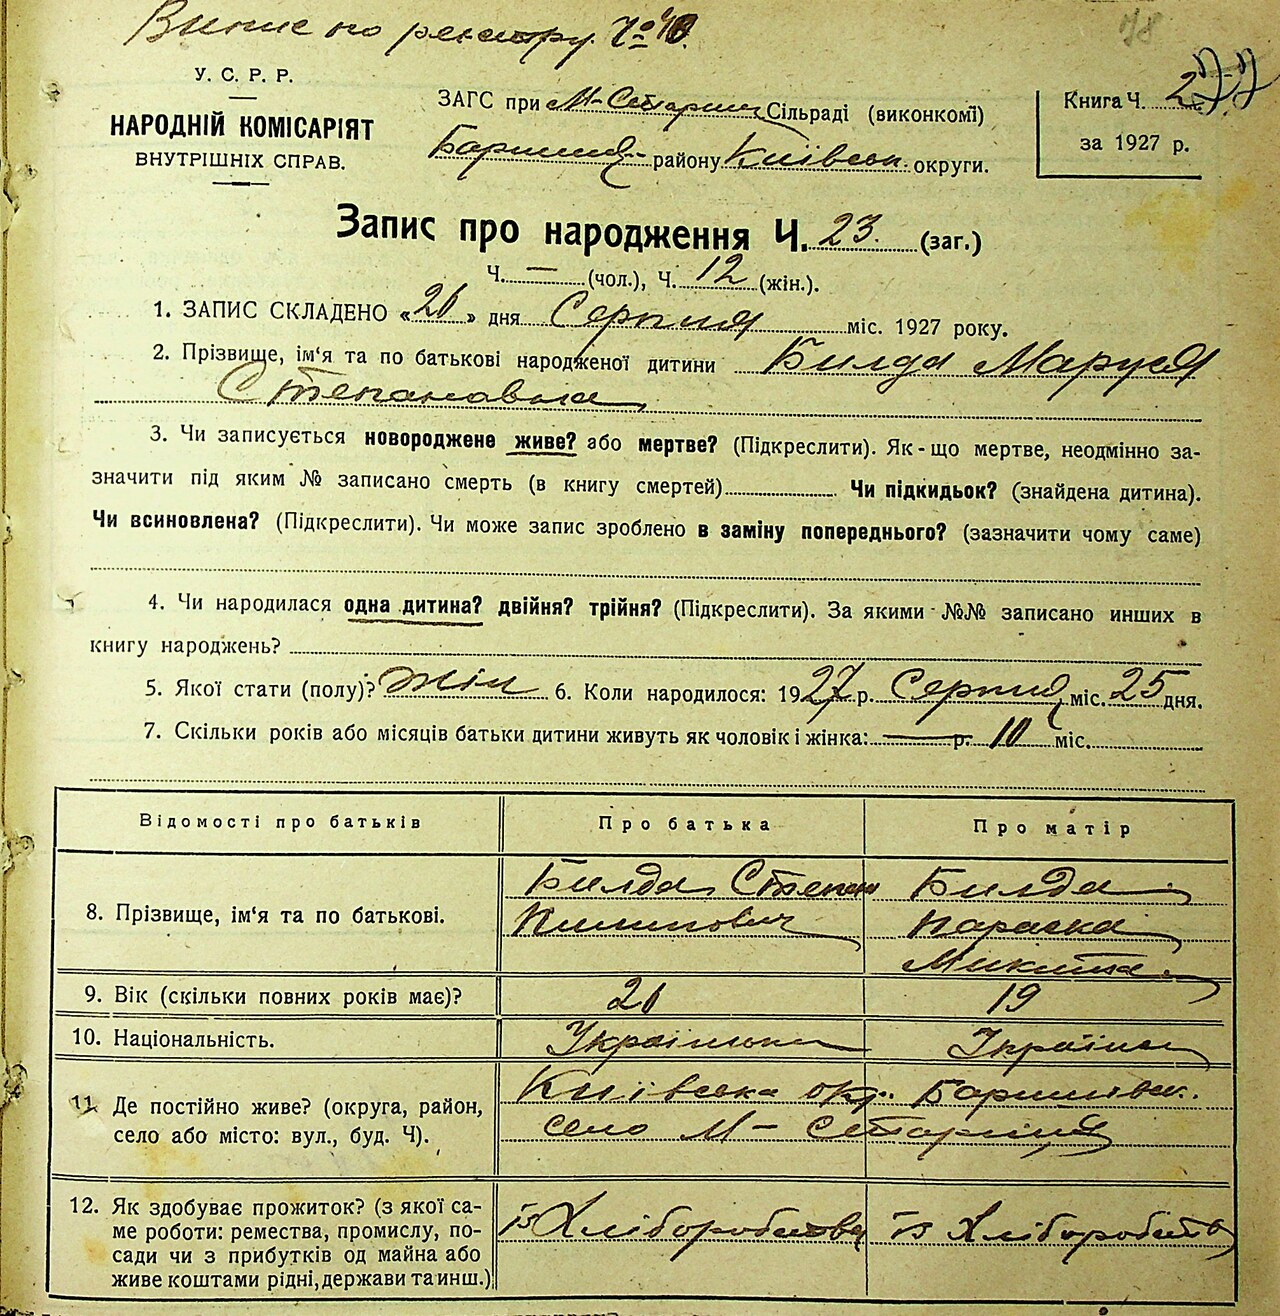 Випис по реєстру № 40.
78
У. С. Р. Р.
НАРОДНІЙ КОМІСАРІЯТ
ВНУТРІШНІХ СПРАВ.
ЗАГС при М-Старицькій Сільраді (виконкомі)
Баришів. району Київськ. округи.
Книга Ч. 277
за 1927 р.
Запис про народження Ч. 23. (заг.)
Ч. — (чол.), Ч. 12 (жін.).
1. ЗАПИС СКЛАДЕНО «26» дня Серпня міс. 1927 року.
2. Прізвище, ім‘я та по батькові народженої дитини Билда Маруся
Степанавна
3. Чи записується новороджене живе? або мертве? (Підкреслити). Як-що мертве, неодмінно за-
значити під яким № записано смерть (в книгу смертей) Чи підкидьок? (знайдена дитина).
Чи всиновлена? (Підкреслити). Чи може запис зроблено в заміну попереднього? (зазначити чому саме)
4. Чи народилася одна дитина? двійня? трійня? (Підкреслити). За якими №№ записано инших в
книгу народжень?
5. Якої стати (полу)? жін 6. Коли народилося: 1927 р. Серпня міс. 25 дня.
7. Скільки років або місяців батьки дитини живуть як чоловік і жінка: — р. 10 міс.
Відомості про батьків
Про батька
Про матір
8. Прізвище, ім‘я та по батькові.
Билда Степан
Пилипович
Билда
Параска
Микит.
9. Вік (скільки повних років має)?
21
19
10. Національність.
Українська
Україн
11. Де постійно живе? (округа, район,
село або місто: вул., буд. Ч).
Київська окр. Баришівськ.
село М- Стариця
12. Як здобуває прожиток? (з якої са-
ме роботи: ремества, промислу, по-
сади чи з прибутків од майна або
живе коштами рідні, держави та инш.)
із Хліборобства
із Хліборобств